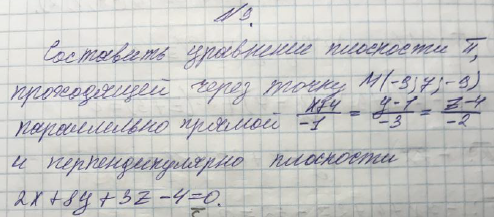 №9.
Составить уравнение плоскости π,
проходящей через точку M(-9; 7; -9)
параллельно прямой x+4/-1 = y-1/-3 = z-4/-2
и перпендикулярно плоскости
2x+8y+3z-4=0.